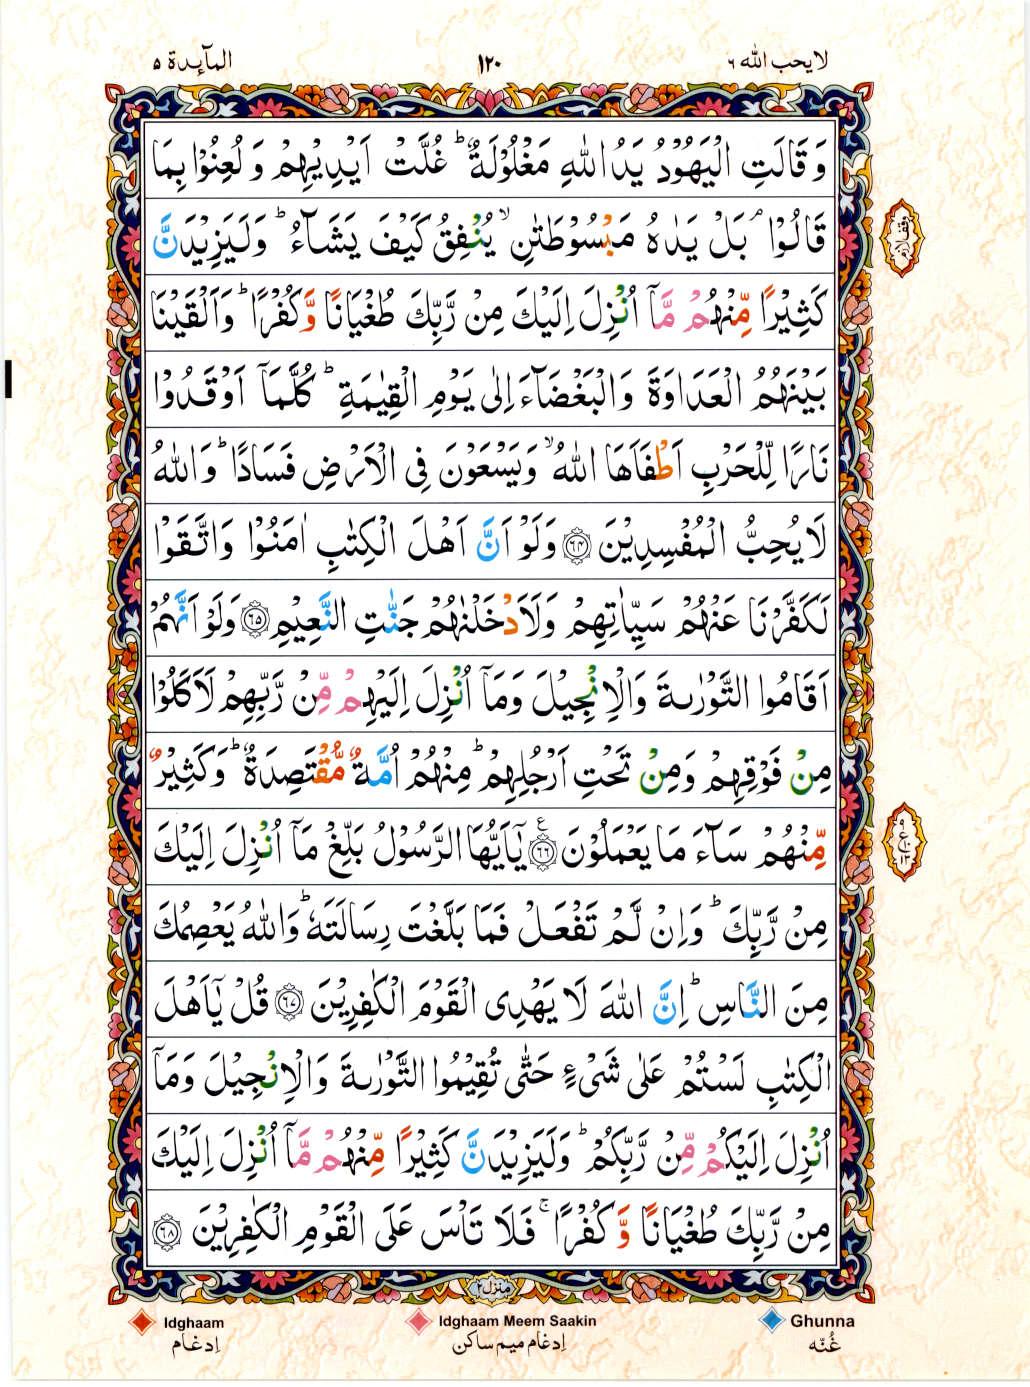 لايحب الله ٦
١٢٠
المآىِٕدة ٥
وَقَالَتِ الْيَهُوْدُ يَدُ اللّٰهِ مَغْلُوْلَةٌ ؕ غُلَّتْ اَيْدِيْهِمْ وَ لُعِنُوْا بِمَا
قَالُوْا ۘ بَلْ يَدٰهُ مَبْسُوْطَتٰنِ ۙ يُنْفِقُ كَيْفَ يَشَآءُ ؕ وَلَيَزِيْدَنَّ
كَثِيْرًا مِّنْهُمْ مَّاۤ اُنْزِلَ اِلَيْكَ مِنْ رَّبِّكَ طُغْيَانًا وَّكُفْرًا ؕ وَاَلْقَيْنَا
بَيْنَهُمُ الْعَدَاوَةَ وَالْبَغْضَآءَ اِلٰى يَوْمِ الْقِيٰمَةِ ؕ كُلَّمَاۤ اَوْقَدُوْا
نَارًا لِّلْحَرْبِ اَطْفَاَهَا اللّٰهُ ۙ وَيَسْعَوْنَ فِى الْاَرْضِ فَسَادًا ؕ وَاللّٰهُ
لَا يُحِبُّ الْمُفْسِدِيْنَ ۝٦٤ وَلَوْ اَنَّ اَهْلَ الْكِتٰبِ اٰمَنُوْا وَاتَّقَوْا
لَكَفَّرْنَا عَنْهُمْ سَيِّاٰتِهِمْ وَلَاَدْخَلْنٰهُمْ جَنّٰتِ النَّعِيْمِ ۝٦٥ وَلَوْ اَنَّهُمْ
اَقَامُوا التَّوْرٰىةَ وَالْاِنْجِيْلَ وَمَاۤ اُنْزِلَ اِلَيْهِمْ مِّنْ رَّبِّهِمْ لَاَكَلُوْا
مِنْ فَوْقِهِمْ وَمِنْ تَحْتِ اَرْجُلِهِمْ ؕ مِنْهُمْ اُمَّةٌ مُّقْتَصِدَةٌ ؕ وَكَثِيْرٌ
مِّنْهُمْ سَآءَ مَا يَعْمَلُوْنَ ۝٦٦ ع يٰۤاَيُّهَا الرَّسُوْلُ بَلِّغْ مَاۤ اُنْزِلَ اِلَيْكَ
مِنْ رَّبِّكَ ؕ وَاِنْ لَّمْ تَفْعَلْ فَمَا بَلَّغْتَ رِسَالَتَهٗ ؕ وَاللّٰهُ يَعْصِمُكَ
مِنَ النَّاسِ ؕ اِنَّ اللّٰهَ لَا يَهْدِى الْقَوْمَ الْكٰفِرِيْنَ ۝٦٧ قُلْ يٰۤاَهْلَ
الْكِتٰبِ لَسْتُمْ عَلٰى شَىْءٍ حَتّٰى تُقِيْمُوا التَّوْرٰىةَ وَالْاِنْجِيْلَ وَمَاۤ
اُنْزِلَ اِلَيْكُمْ مِّنْ رَّبِّكُمْ ؕ وَلَيَزِيْدَنَّ كَثِيْرًا مِّنْهُمْ مَّاۤ اُنْزِلَ اِلَيْكَ
مِنْ رَّبِّكَ طُغْيَانًا وَّكُفْرًا ۚ فَلَا تَاْسَ عَلَى الْقَوْمِ الْكٰفِرِيْنَ ۝٦٨
وقف لازم
منزل ٢
Ghunna
Idghaam Meem Saakin
Idghaam
غُنّه
اِدغام میم ساکن
اِدغام